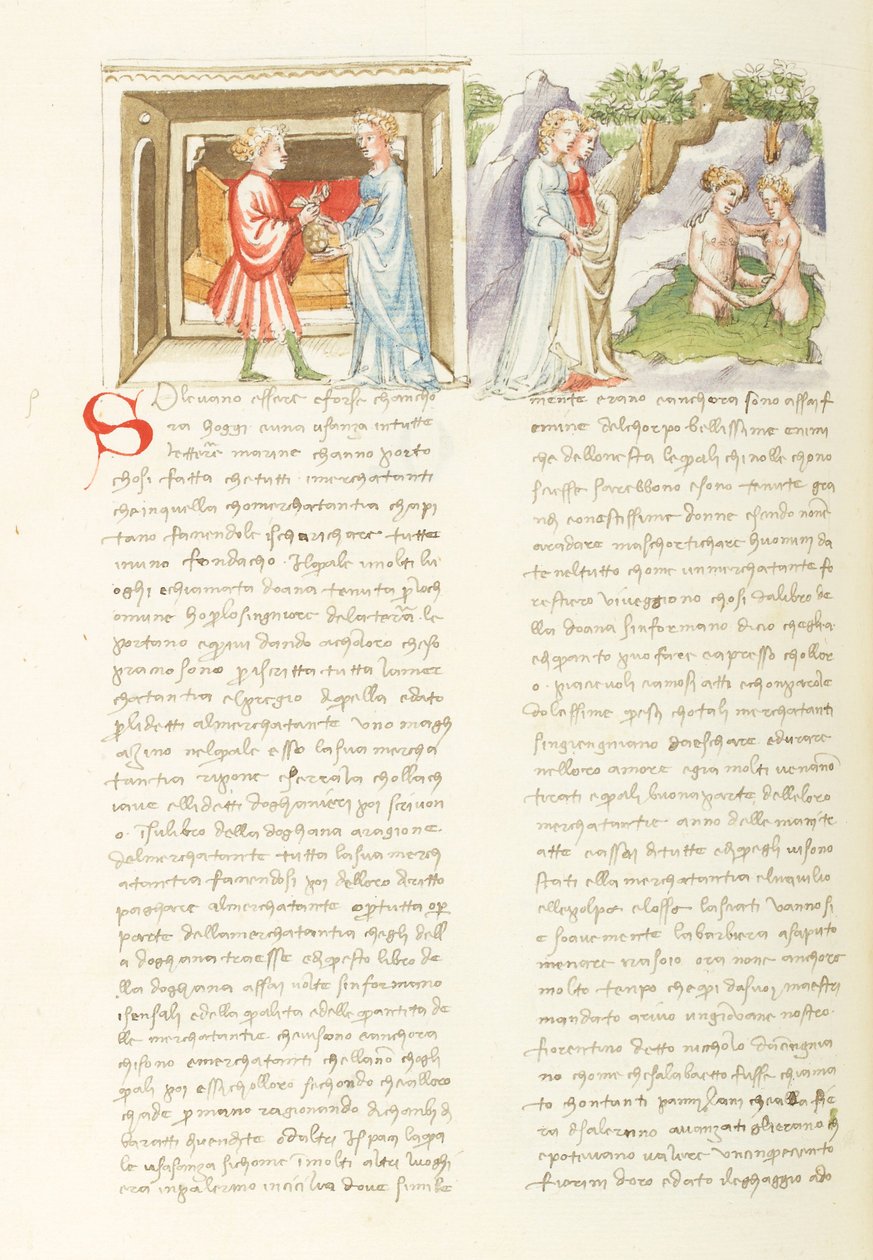 Solevano essere e forse chancho
ra hoggi e una usanza in tutte
le tterre marine channo porto
chosi fatta che tutti i merchatanti
che in quella cho merchatantia chapi
tano faciendole ischarichare tutte
in uno fondacho. Il quale in molti lu
oghi e chiamata doana tenuta p loch
omune ho p lo singniore dela terra. le
portano e quivi dando acholoro cheso
pracio sono p iscritta tutta lamer
chatantia el pregio di quella e dato
p li detti al merchatante uno magh
azino nel quale esso la sua mercha
tantia ripone e serrala cholla ch
iave elli detti doghanieri poi scrivon
o. ī sulibro della doghana aragione.
del merchatante tutta la sua merch
atantia faciendosi poi delloro diritto
paghare al merchatante o p tutta o p
parte della merchatantia chegli dell
a doghana traesse e di questo libro de
lla doghana assai volte sinformano
i sensali e della qualita e delle quantita de
lle merchatantie. che vi sono e anchora
chi sono e merchatanti chellano chogli
quali poi essi cholloro sechondo che alloro
chade p mano ragionando di chanbi di
baratti di vendite o daltri ispaci laqua
le usasanza sichome ī molti altri luoghi
era in palermo in cicilia dove simile
mente erano e anchora sono assai f
emine del chorpo bellissime e nimi
che dellonesta le quali chi nolle chono
sciesse sarebbono e sono tenute gra
ndi e onestissime donne esendo none
a radare ma schortichare huomini da
te nel tutto chome un merchatante fo
restiero vi veggiono chosi dalibro de
lla doana sinformano di cio chegli a
e di quanto puo fare e apresso chollor
o. piacievoli e amosi atti e chon parole
dolcissime questi chotali merchatanti
singiengniano daeschare e dtrarre
nelloro amore e gia molti venāno
tirati e quali buona parte delle loro
merchatantie anno delle mani tr
atte e assai di tutte e di quegli vi sono
stati ella merchatantia el navilio
elle polpe ellossa lasciati vannosi
e soavemente la barbiera a saputo
menare rasoio ora none anchora
molto tempo che qui dasuoi maestri
mandato arivo un giovane nostro.
fiorentino detto nicholo dacingnia
no chome che salabaetto fusse chiama
to chontanti panni lani che alla fie
ra di salerno avanzati glierano ch
e potevano valere un cinquecento
fiorini doro e dato il ghaggio ado